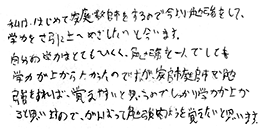 私は、はじめて家庭教師をするので今より勉強をして、
学力をさらに上へめざしたいと今います。
自分の学力はとてもひくく、勉強を一人でしても
学力が上がらなかったのですが家庭教師で勉
強をすれば、覚えやすいと思うのでしっかり学力が上が
ると思いますので、がんばって勉強を覚えたいと思います。